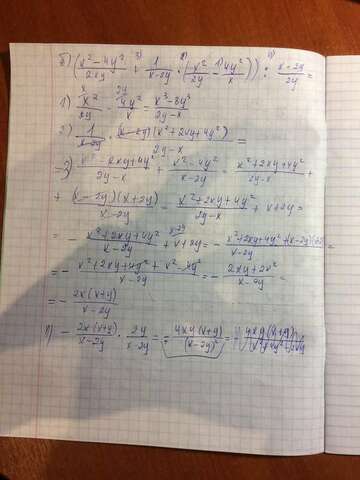 б) ( (x² - 4y²)/(2xy) + 1/(x-2y) · ( x²/(2y) - 4y²/x ) ) : (x-2y)/(2y) =
1) x²/(2y) - 4y²/x = (x³-8y³)/(2y-x)
2) 1/(x-2y) · (x-2y)(x²+2xy+4y²)/(2y-x) =
= (x²+2xy+4y²)/(2y-x) + (x²-4y²)/(x-2y) = (x²+2xy+4y²)/(2y-x) +
+ (x-2y)(x+2y)/(x-2y) = (x²+2xy+4y²)/(2y-x) + x+2y =
= - (x²+2xy+4y²)/(x-2y) + x+2y =
= - (x²+2xy+4y² + x²-4y²)/(x-2y) = - (2xy+2x²)/(x-2y) =
= - 2x(x+y)/(x-2y)
- 2x(x+y)/(x-2y) · 2y/(x-2y) = - 4xy(x+y)/(x-2y)² =